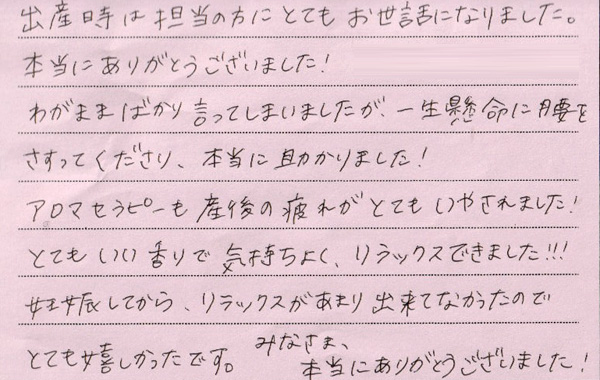 出産時は担当の方にとてもお世話になりました。
本当にありがとうございました!
わがままばかり言ってしまいましたが、一生懸命に腰を
さすってくださり、本当に助かりました!
アロマセラピーも産後の疲れがとてもいやされました!
とてもいい香りで気持ちよく、リラックスできました!!!
妊娠してから、リラックスがあまり出来てなかったので
とても嬉しかったです。みなさま、
本当にありがとうございました!